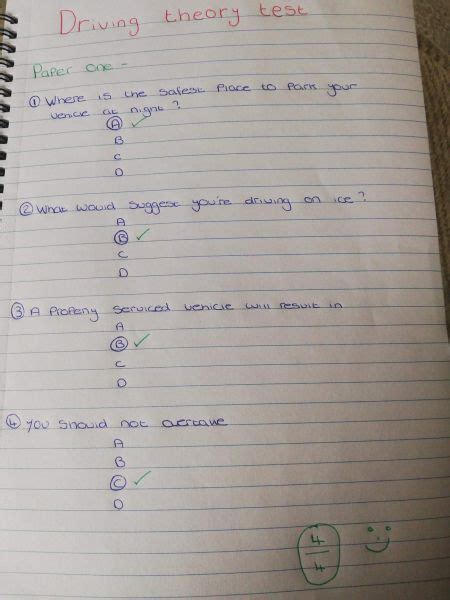 Driving theory test
Paper One -
① Where is the safest place to park your
vehicle at night?
A ✓
B
C
D
② What would suggest you're driving on ice?
A
B ✓
C
D
③ A properly serviced vehicle will result in
A
B ✓
C
D
④ you should not overtake
A
B
C ✓
D
4/4